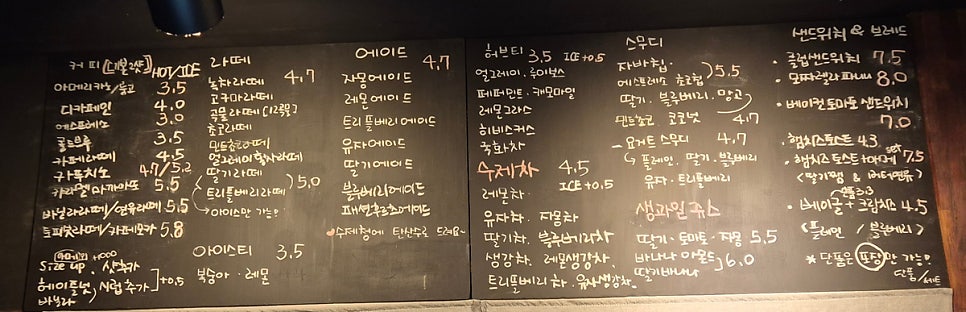 커피 [더블샷] HOT/ICE
아메리카노/득고 3.5
디카페인 4.0
에스프레소 3.0
콜드브루 3.5
카페라떼 4.5
카푸치노 4.7/5.2
카라멜마끼아또 5.5
바닐라라떼/연유라떼 5.5
토피넛라떼/카페모카 5.8
+1000
Size up, 샷추가
헤이즐넛, 시럽 추가 ]+0.5
바닐라
라떼
녹차라떼 4.7
고구마라떼
곡물라떼 [12곡물]
초코라떼
민트초코라떼
얼그레이홍차라떼
딸기라떼
트리플베리라떼 ) 5.0
↳ 아이스만 가능!
아이스티 3.5
복숭아 · 레몬
에이드 4.7
자몽에이드
레몬에이드
트리플베리에이드
유자에이드
딸기에이드
블루베리에이드
패션후르츠에이드
수제청에 탄산수로 드려요~
허브티 3.5 ICE+0.5
얼그레이. 루이보스
페퍼민트. 캐모마일
레몬그라스
히비스커스
국화차
수제차 4.5
ICE+0.5
레몬차.
유자차. 자몽차
딸기차. 블루베리차
생강차. 레몬생강차.
트리플베리차. 유자생강차.
스무디
자바칩.
에스프레소 초코칩 ) 5.5
딸기. 블루베리. 망고
민트초코. 코코넛 4.7
- 요거트 스무디 4.7
↳ 플레인. 딸기. 블루베리
유자. 트리플베리
생과일쥬스
딸기 · 토마토 · 자몽 5.5
바나나 아몬드
딸기바나나 ) 6.0
샌드위치 & 브레드
· 클럽샌드위치 7.5
· 모짜렐라파니니 8.0
· 베이컨토마토 샌드위치
7.0
· 햄치즈토스트 4.3
· 햄치즈토스트+아메 set 7.5
(딸기잼 & 버터연유)
플레인 3.3
· 베이글 + 크림치즈 4.5
(플레인 / 블루베리)
* 단품은 포장만 가능!
단품/세트